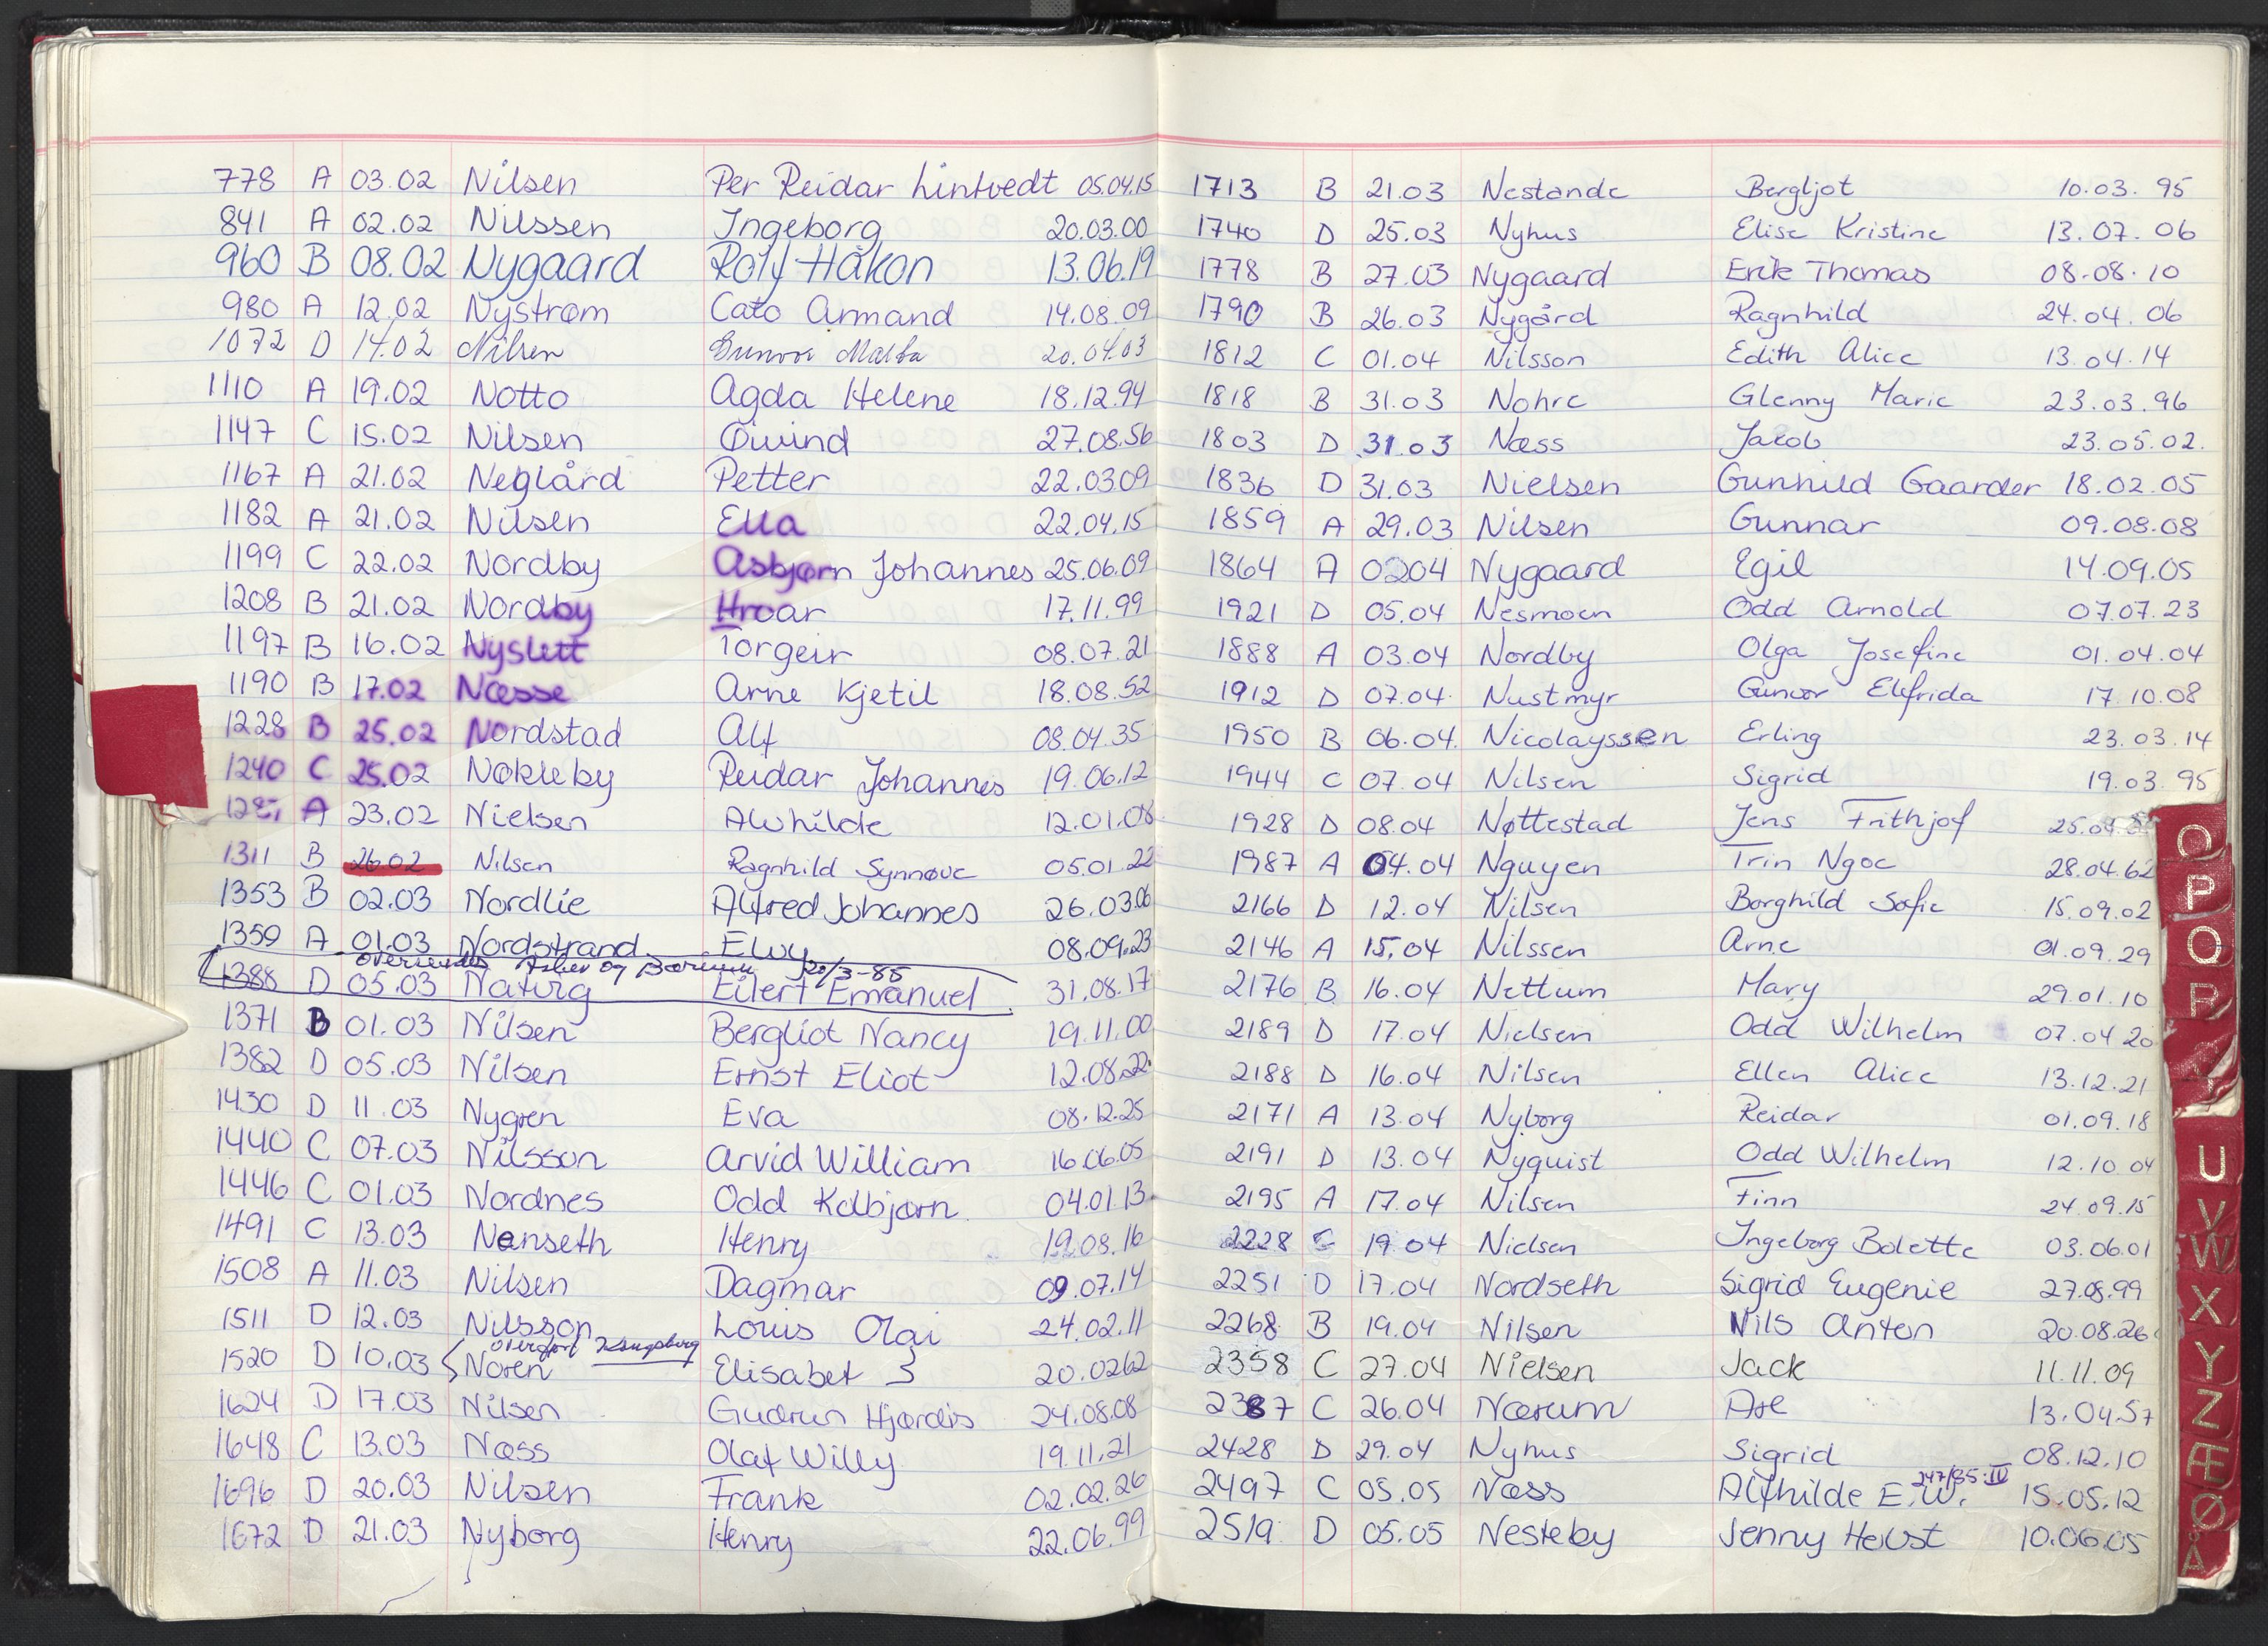 778 A 03.02 Nilsen Per Reidar Lintvedt 05.04.15
841 A 02.02 Nilssen Ingeborg 20.03.00
960 B 08.02 Nygaard Rolf Håkon 13.06.19
980 A 12.02 Nystrøm Cato Armand 14.08.09
1072 D 14.02 Nilsen Gunvor Malba 20.04.03
1110 A 19.02 Notto Agda Helene 18.12.94
1147 C 15.02 Nilsen Øivind 27.08.56
1167 A 21.02 Neglård Petter 22.03.09
1182 A 21.02 Nilsen Ella 22.04.15
1199 C 22.02 Nordby Asbjørn Johannes 25.06.09
1208 B 21.02 Nordby Hroar 17.11.99
1197 B 16.02 Nyslett Torgeir 08.07.21
1190 B 17.02 Næsse Arne Kjetil 18.08.52
1228 B 25.02 Nordstad Alf 08.04.35
1240 C 25.02 Nøkleby Reidar Johannes 19.06.12
A 23.02 Nielsen Alvhilde 12.01.08
1311 B 26.02 Nilsen Ragnhild Synnøve 05.01.22
1353 B 02.03 Nordlie Alfred Johannes 26.03.06
1359 A 01.03 Nordstrand Elvy 08.09.23
Asker og Bærum 20/3-85
1388 D 05.03 Natvig Eilert Emanuel 31.08.17
1371 B 01.03 Nilsen Bergliot Nancy 19.11.00
1382 D 05.03 Nilsen Ernst Eliot 12.08.22
1430 D 11.03 Nygren Eva 08.12.25
1440 C 07.03 Nilsson Arvid William 16.06.05
1446 C 01.03 Nordnes Odd Kolbjørn 04.01.13
1491 C 13.03 Nenseth Henry 19.08.16
1508 A 11.03 Nilsen Dagmar 09.07.14
1511 D 12.03 Nilsson Louis Olai 24.02.11
overført Kongsberg
1520 D 10.03 Noren Elisabet S 20.0262
1624 D 17.03 Nilsen Gudrun Hjørdis 24.08.08
1648 C 13.03 Næss Olaf Willy 19.11.21
1696 D 20.03 Nilsen Frank 02.02.26
1672 D 21.03 Nyborg Henry 22.06.99
1713 B 21.03 Nestande Bergljot 10.03.95
1740 D 25.03 Nyhus Elise Kristine 13.07.06
1778 B 27.03 Nygaard Erik Thomas 08.08.10
1790 B 26.03 Nygård Ragnhild 24.04.06
1812 C 01.04 Nilsson Edith Alice 13.04.14
1818 B 31.03 Nohre Glenny Marie 23.03.96
1803 D 31.03 Næss Jacob 23.05.02.
1836 D 31.03 Nielsen Gunhild Gaarder 18.02.05
1859 A 29.03 Nilsen Gunnar 09.08.08
1864 A 0204 Nygaard Egil 14.09.05
1921 D 05.04 Nesmoen Odd Arnold 07.07.23
1888 A 03.04 Nordby Olga Josefine 01.04.04
1912 D 07.04 Nustmyr Gunvor Elfrida 17.10.08
1950 B 06.04. Nicolayssen Erling 23.03.14
1944 C 07.04 Nilsen Sigrid 19.03.95
1928 D 08.04 Nøttestad Jens Frithjof 25.04.
1987 A 04.04 Nguyen Trin Ngoc 28.04.62
2166 D 12.04 Nilsen Borghild Sofie 15.09.02
2146 A 15.04 Nilssen Arne 01.09.29
2176 B 16.04 Nettum Mary 29.01.10
2189 D 17.04 Nielsen Odd Wilhelm 07.04.20
2188 D 16.04 Nilsen Ellen Alice 13.12.21
2171 A 13.04 Nyborg Reidar 01.09.18
2191 D 13.04 Nyquist Odd Wilhelm 12.10.04
2195 A 17.04 Nilsen Finn 24.09.15
2228 C 19.04 Nielsen Ingeborg Bolette 03.06.01
2251 D 17.04 Nordseth Sigrid Eugenie 27.08.99
2268 B 19.04 Nilsen Nils Anton 20.08.26
2358 C 27.04 Nielsen Jack 11.11.09
2387 C 26.04 Nærum Are 13.04.57
2428 D 29.04 Nyhus Sigrid 08.12.10
247/85:IV
2497 C 05.05 Næss Alfhilde E.W. 15.05.12
2519 D 05.05 Nesteby Jenny Helvst 10.06.05
O
P
Q
R
U
V
W
X
Y
Z
Æ
Ø
Å